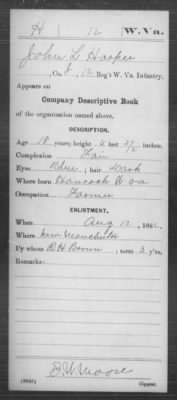 H 12 W. Va.
John L Hooker
, Co. I, 12 Reg't W. Va. Infantry.
Appears on
Company Descriptive Book
of the organization named above.
DESCRIPTION.
Age 18 years; height 5 feet 3 1/2 inches.
Complexion Fair
Eyes Blue; hair Dark
Where born Hancock W va
Occupation Farmer
ENLISTMENT.
When Aug 12, 1862.
Where New Manchester
By whom R H Brown; term 3 y'rs.
Remarks:
J. W. Moore
Copyist.